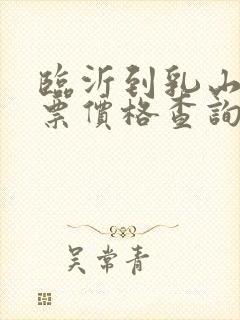 臨沂到乳山
票價格查詢
吴常青